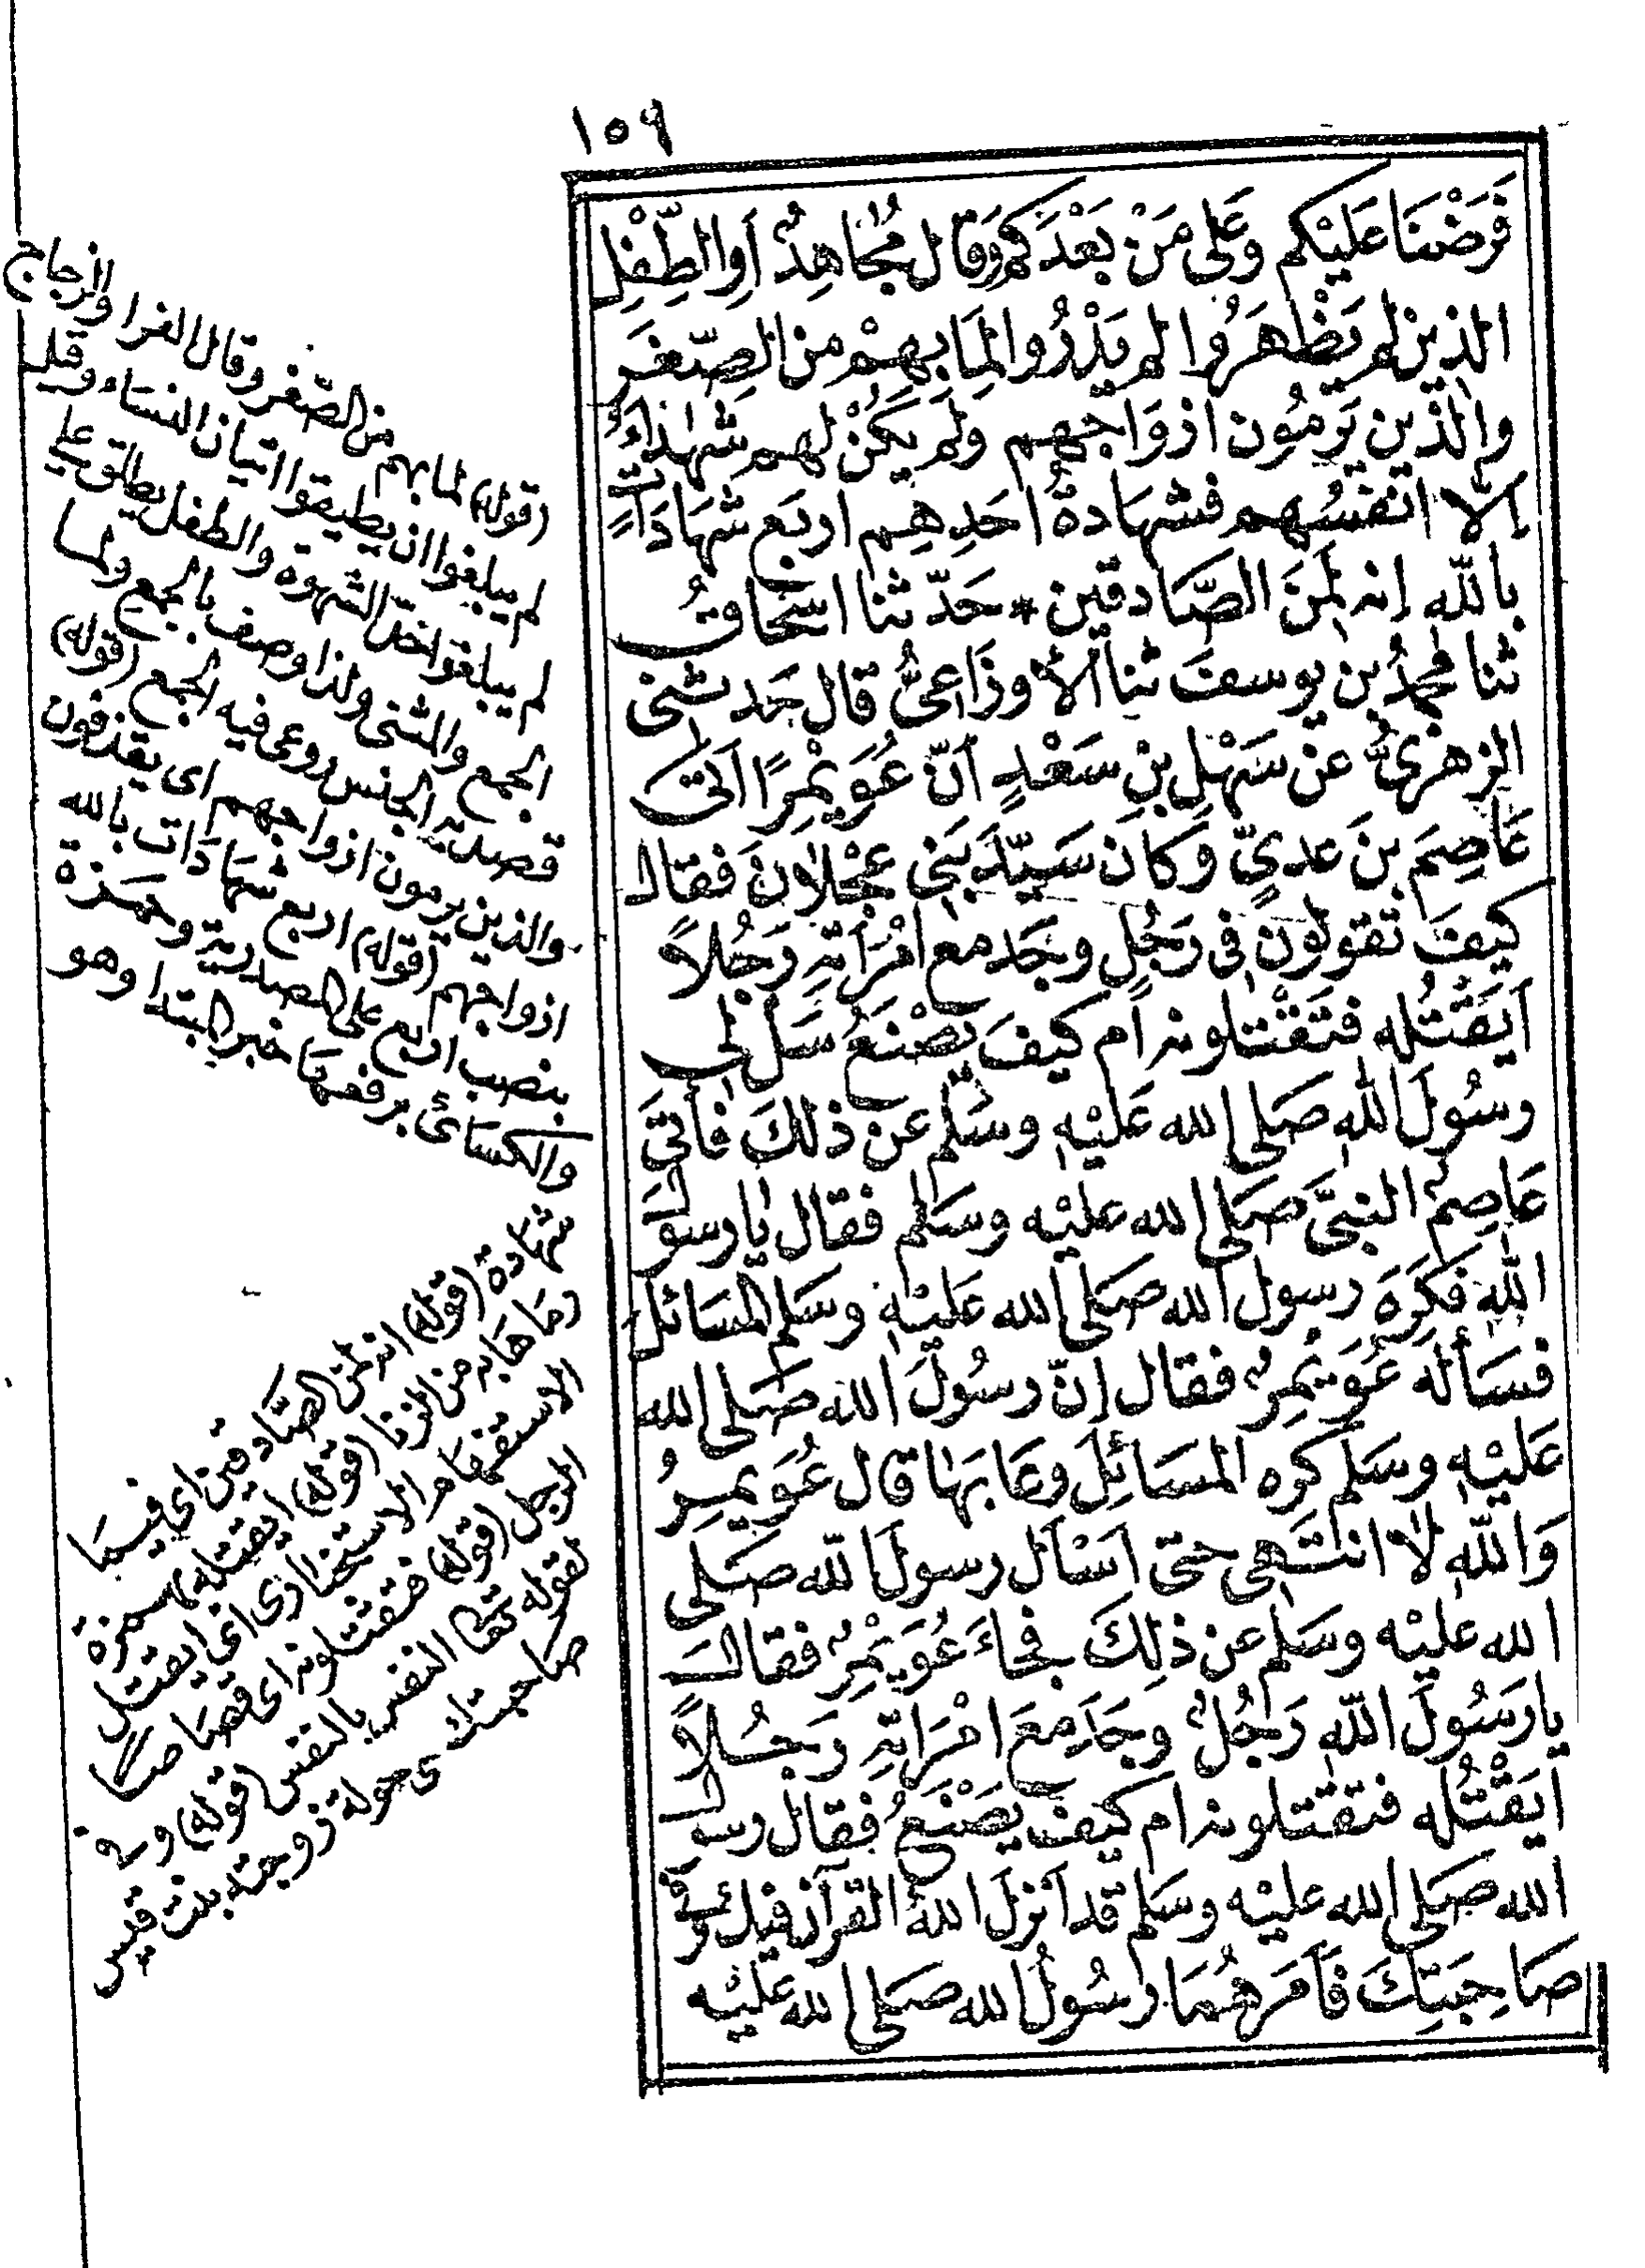 ١٥٩
فَرَضْنَا عَلَيْكم وَعَلى مَنْ بَعْدَكم وَقال مُجَاهِدٌ أوِ الطِّفْلِ
الذين لم يَظْهَرُوا لم يَدْرُوا لِمَا بهم من الصِّغَرِ
والذين يَرمُون ازوَاجهم ولم يَكُنْ لهم شهَدَاءُ
إلّا انفسُهم فشهَادةُ احَدِهِم اربَع شهَادَاتٍ
بالله إنه لَمِنَ الصَّادقين * حَدّثنا اسحَاقُ
ثنا محمدُ بن يوسفَ ثنا الأوزَاعِىُّ قال حَدثنى
الزهرىُّ عن سَهْلِ بنِ سَعْدٍ أنّ عُوَيْمِرًا أتى
عَاصِمَ بنَ عدىٍّ وَكان سَيّدَ بَنِى عَجْلانَ فقال
كيفَ تقولونَ فى رَجُلٍ وجَدَ مع امْرَأتِهِ رَجُلاً
أيَقْتُله فتَقْتلونه أم كيفَ يصْنَعُ سَلْ لى
رسُولَ اللهِ صَلى الله عَليْهِ وسَلم عن ذلكَ فأتَى
عَاصِمٌ النبىَّ صَلى الله عليْه وسَلم فقال يا رسولَ
اللهِ فكَرِهَ رسول الله صَلى الله عَليْهِ وسَلم المسَائلَ
فسَألَه عُوَيْمِرٌ فقال إنّ رسُولَ الله صَلى الله
عَليْهِ وسَلم كره المسَائِلَ وعَابهَا قال عُوَيمِرٌ
وَاللهِ لا انتَهى حتى أسْأل رسولَ الله صَلى
الله عليْه وسَلم عن ذلِكَ فجَاءَ عُوَيْمِرٌ فقال
يا رَسُولَ اللهِ رَجُلٌ وجَدَ مَعَ امْرَاتِهِ رَجُلاً
أيَقْتُله فتقتلونه ام كيْفَ يَصْنَعُ فقال رسولُ
الله صَلى الله عليْه وسَلم قد أنْزلَ اللهُ القرآن فيك وَفى
صَاحِبَتِكَ فأمَرهُمَا رسُولُ الله صَلى الله عَليْه
(قوله) لما بهم من الصّغر وقال الفرا والزجاج
لم يبلغوا ان يطيقوا اتيان النسَاء وقيل
لم يبلغوا حدّ الشهوة والطفل يطلق على
الجمع والمثنى ولذا وصف بالجمع ولما
قصد به الجنس روعى فيه الجمع (قوله)
والذين يرمون ازواجهم اى يقذفون
ازواجهم (قوله) اربع شهَادَات بالله
بنصب اربع على المصدرية وحمزة
والكسَائى برفعهَا خبر المبتدا وهو
شهَادة (قوله) انه لمن الصَّادقين اى فيمَا
رمَاهَا به من الزنا (قوله) ايقتله بهمزة
الاستفهَام الاستخبارى اى ايقتل
الرجل (قوله) فتقتلونه اى قصَاصًا
لقوله تعَا النفس بالنفس (قوله) وفى
صَاحبتك هى خولة زوجته بنت قيس